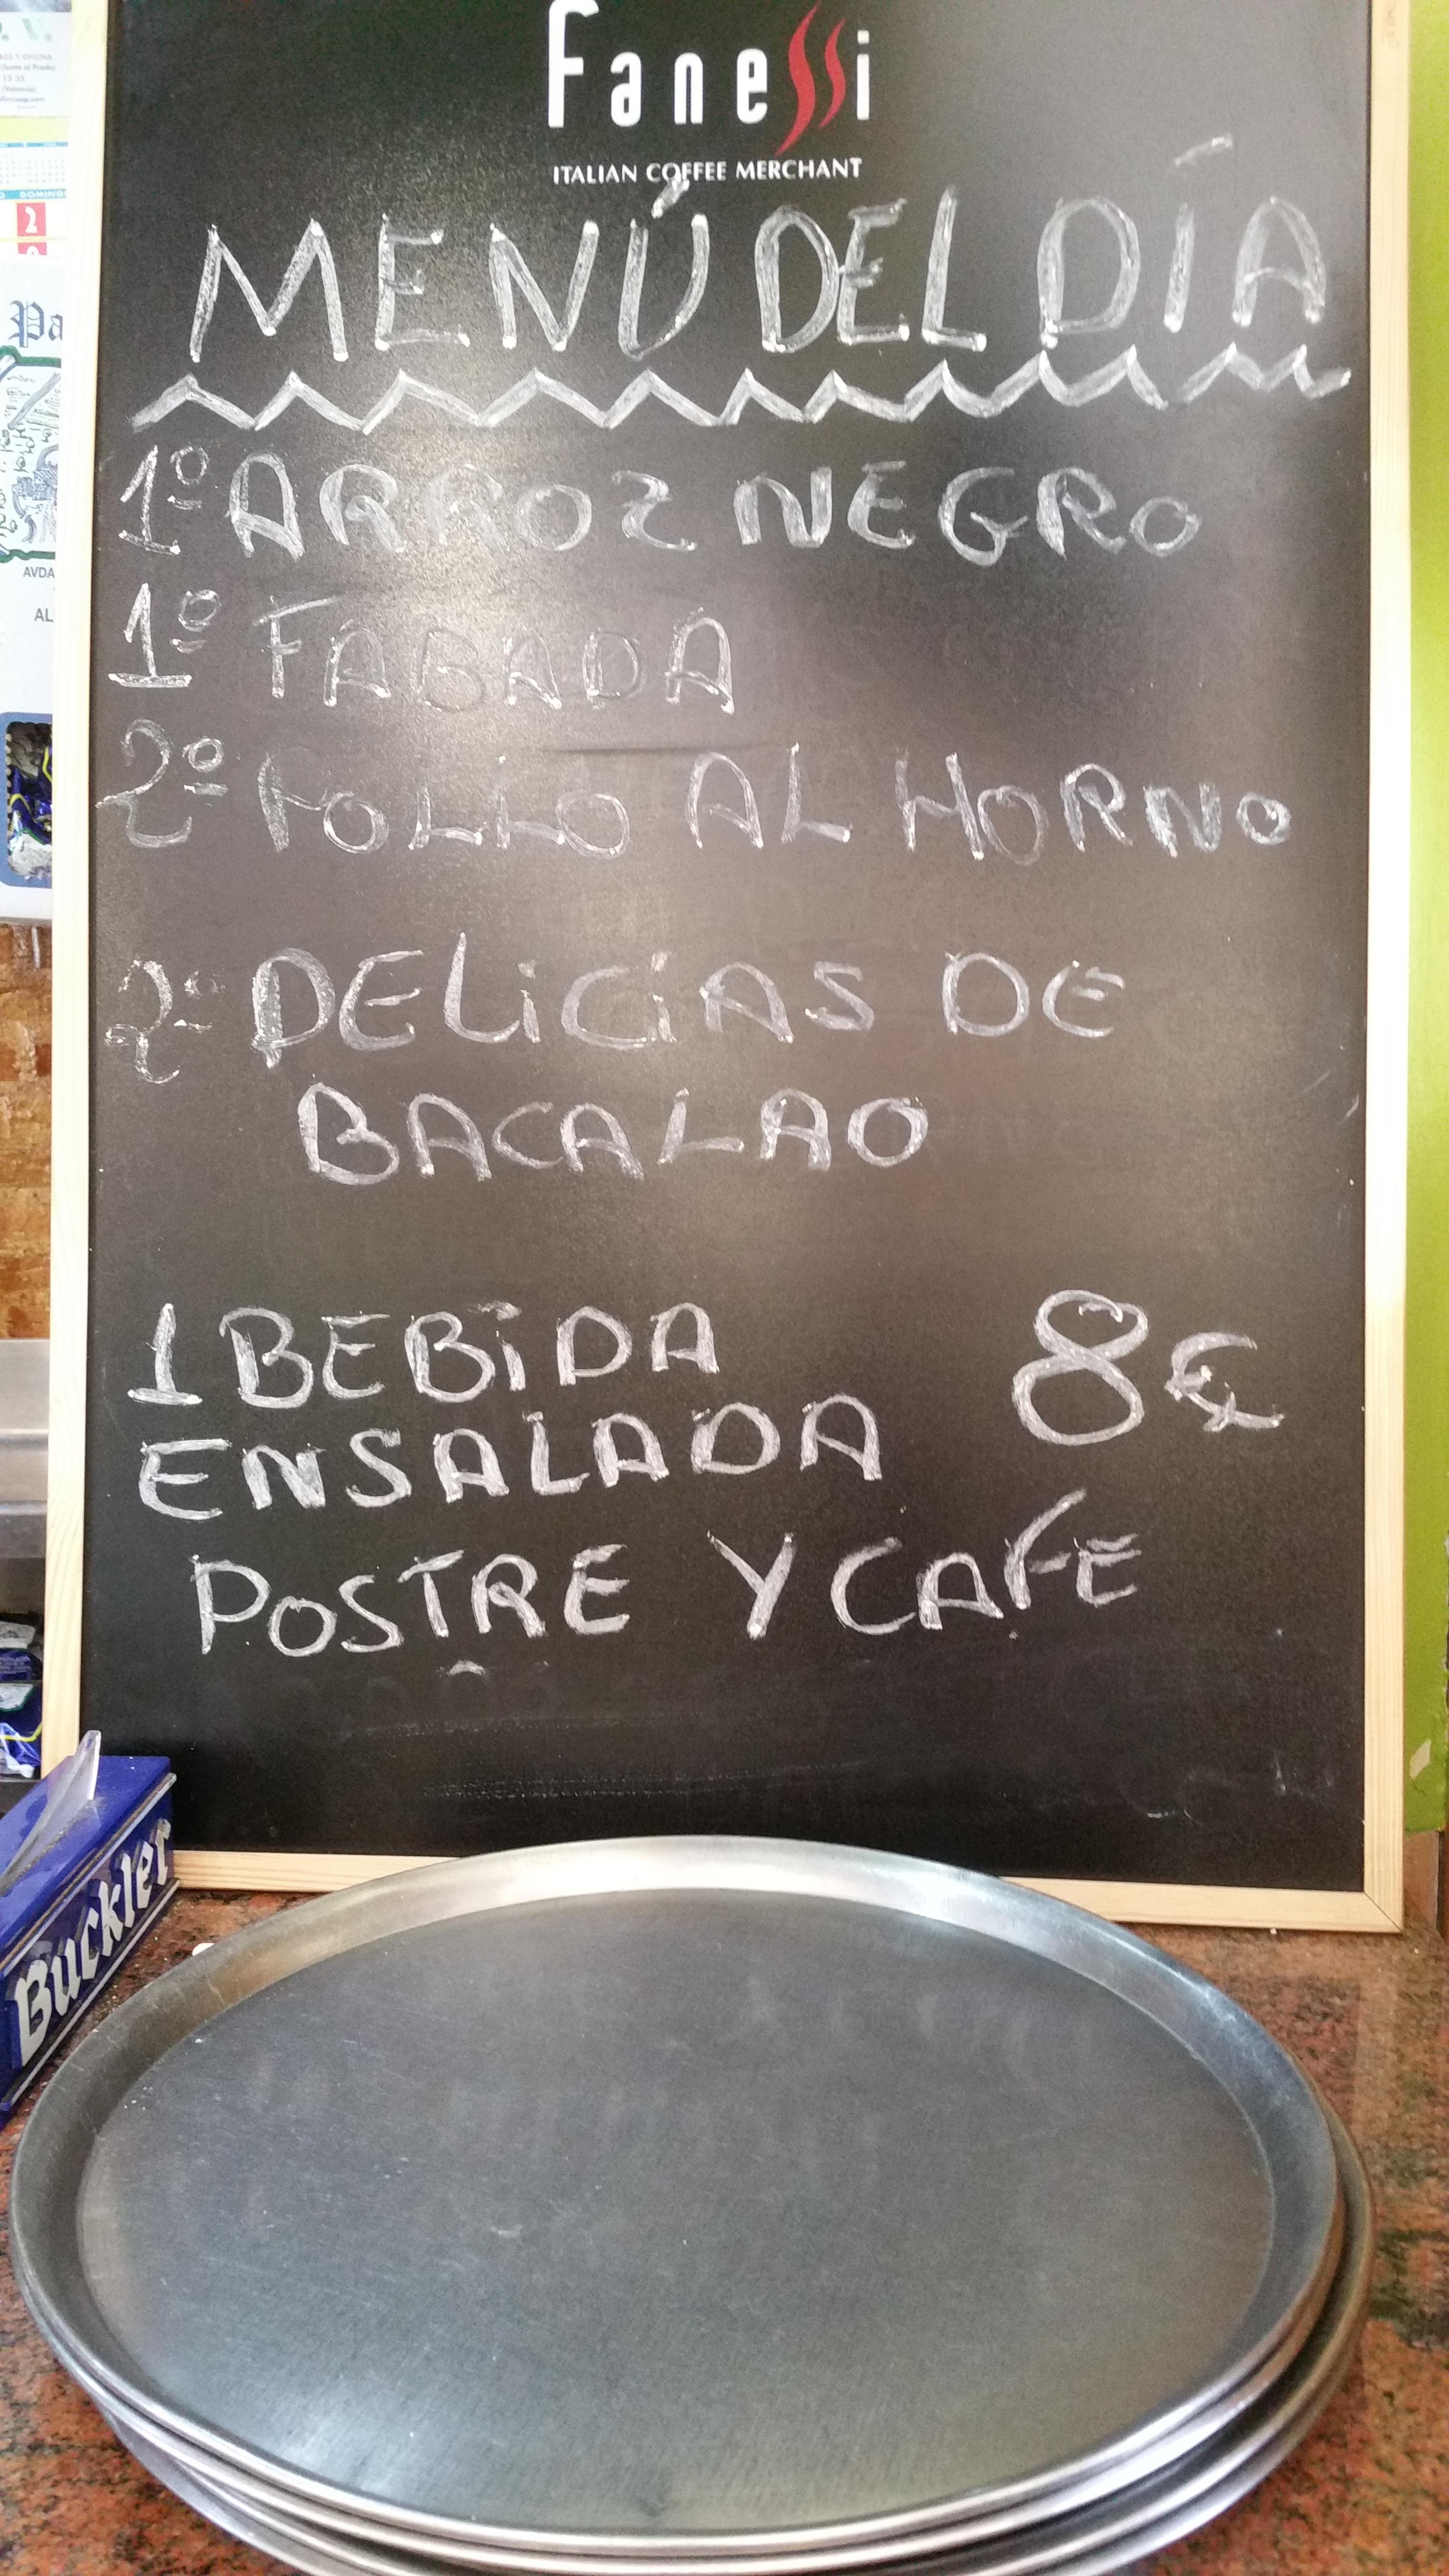 Fanessi
ITALIAN COFFEE MERCHANT
MENÚ DEL DÍA
1º ARROZ NEGRO
1º FABADA
2º POLLO AL HORNO
2º DELiCiAS DE
BACALAO
1 BEBiDA
ENSALADA 8€
POSTRE Y CAFE
Buckler
DOMINGO
2
Pa
AVDA
AL
(Valencia)